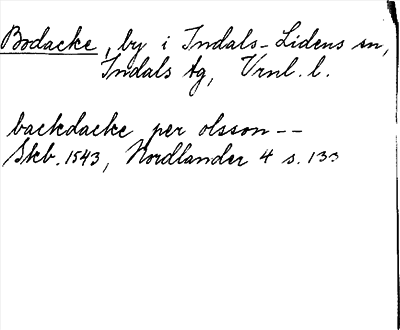 Bodacke, by i Indals-Lidens sn,
Indals tg, Vrnl. l.
backdacke per olsson --
Skb. 1543, Nordlander 4 s. 133